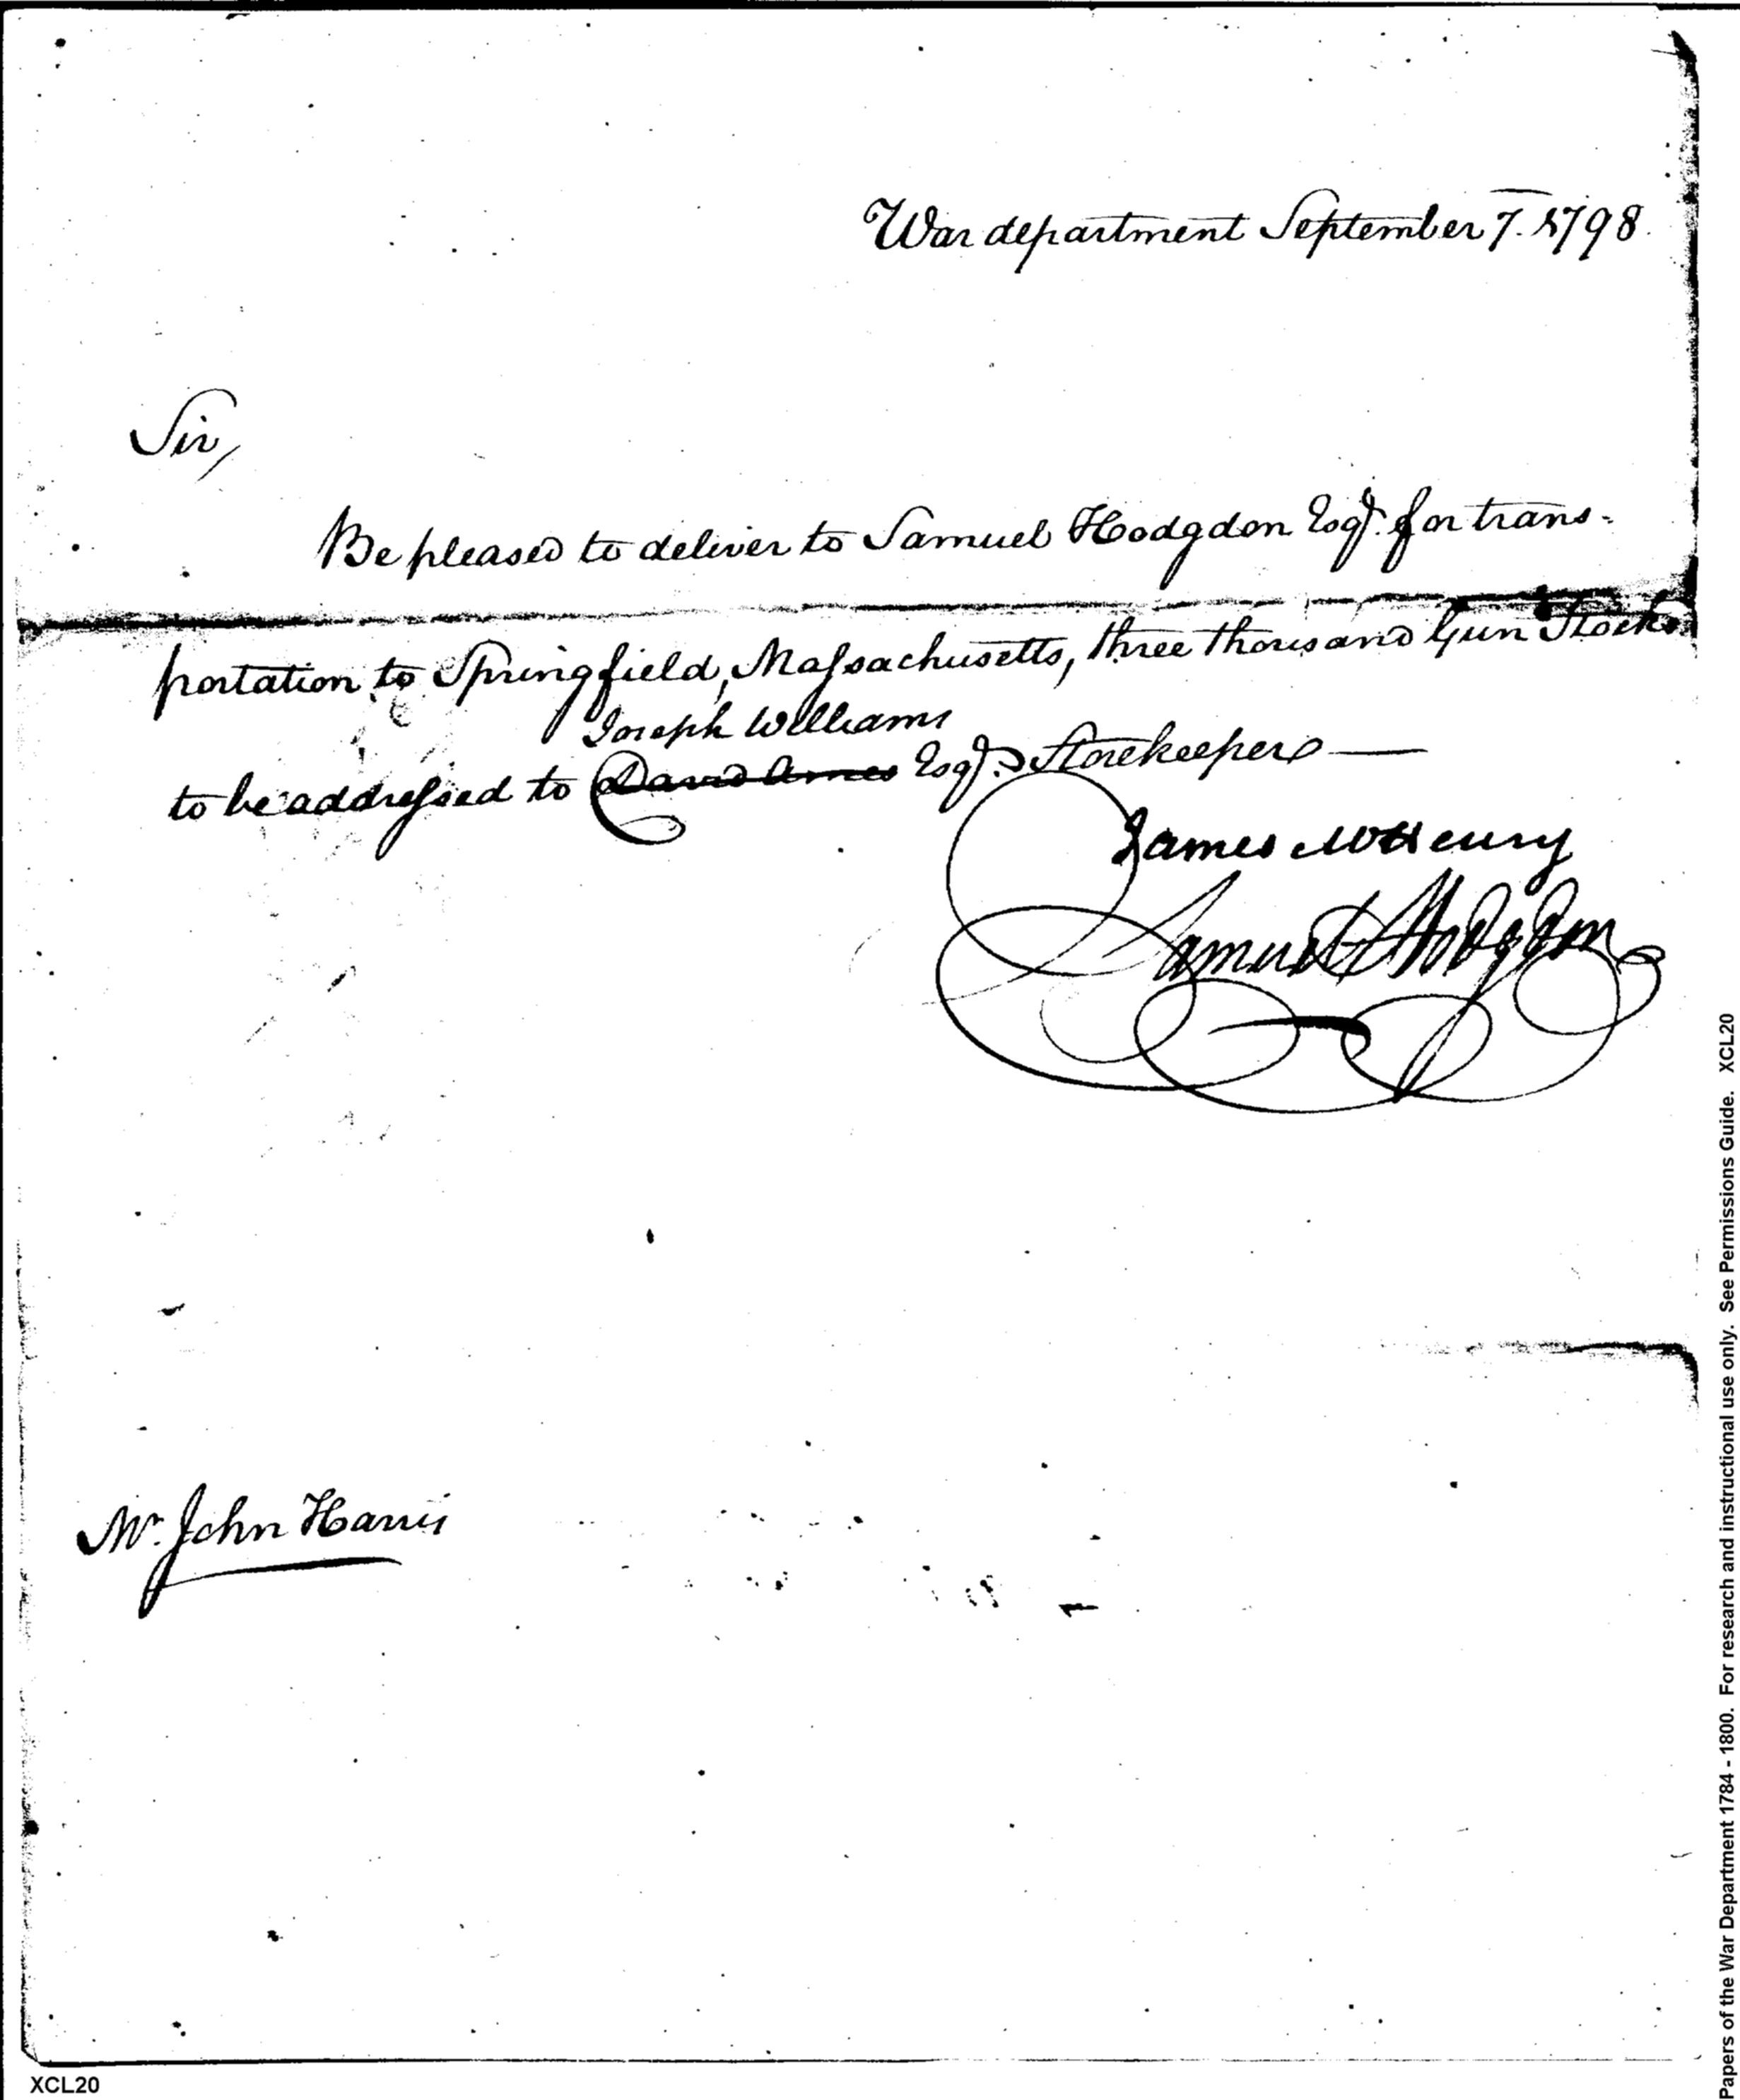 War department September 7. 1798.
Sir,
Be pleased to deliver to Samuel Hodgdon Esqr. for trans-
portation to Springfield, Massachusetts, three thousand Gun Stocks
Joseph Williams
to be addressed to David Ames Esqr. Storekeeper
James McHenry
Samuel Hodgdon
Mr. John Harris
XCL20
Papers of the War Department 1784 - 1800. For research and instructional use only. See Permissions Guide. XCL20